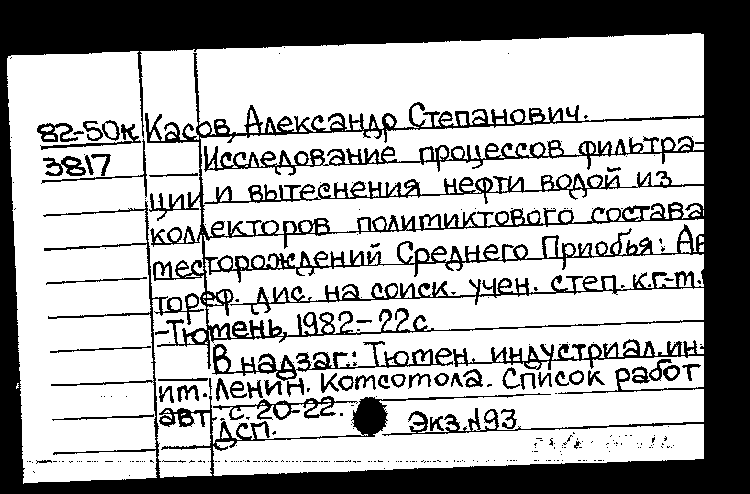 82-50к Касов, Александр Степанович.
3817 Исследование процессов фильтра-
ции и вытеснения нефти водой из
коллекторов полимиктового состава
месторождений Среднего Приобья: Ав
тореф. дис. на соиск. учен. степ. к.г.-м.
-Тюмень, 1982.-22с.
В надзаг.: Тюмен. индустриал. ин-
им. Ленин. комсомола. Список работ
авт.: с. 20-22.
ДСП. Экз.N93